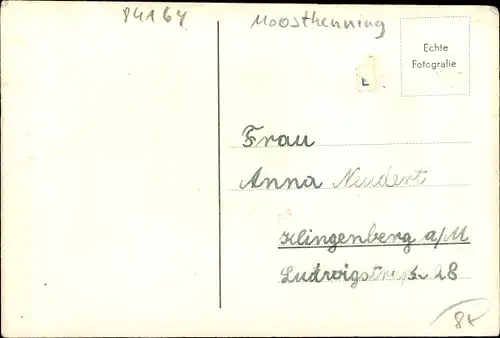 84164 Moosthenning
Echte
Fotografie
Frau
Anna Neudert
Klingenberg a/M
Ludwigstraße 28
8x